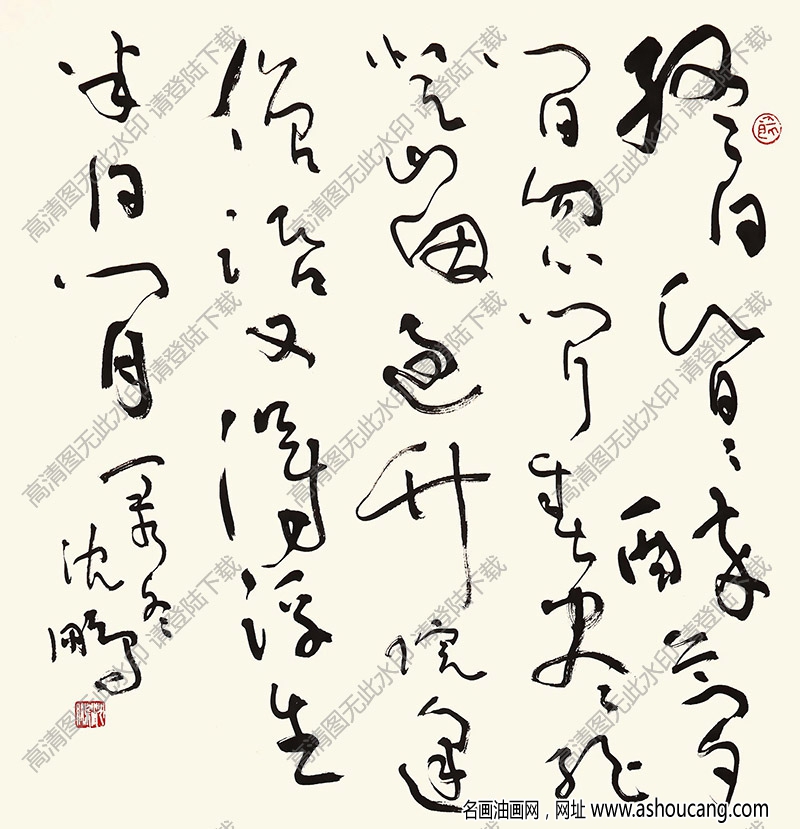 終日昏昏醉夢
間忽聞春盡強
登山因過竹院逢
僧話又得浮生
半日閒
冬
沈鵬
高清图无此水印 请登陆下载
名画油画网，网址 www.ashoucang.com